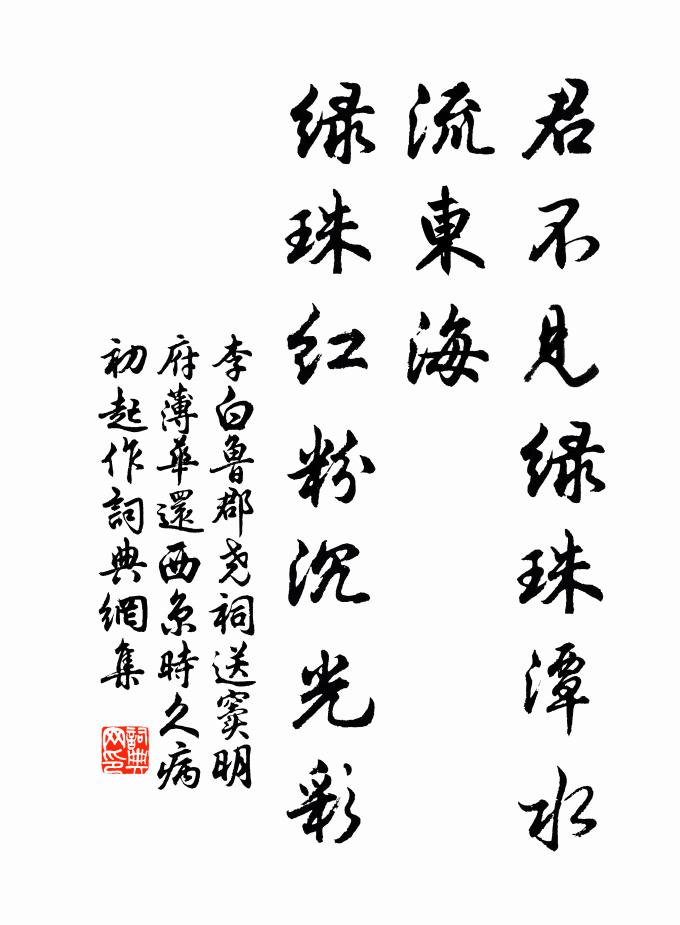 君不見綠珠潭水
流東海
綠珠紅粉沉光彩
李白魯郡尭祠送竇明
府薄華還西京時久病
初起作詞典網集
詞典
网印